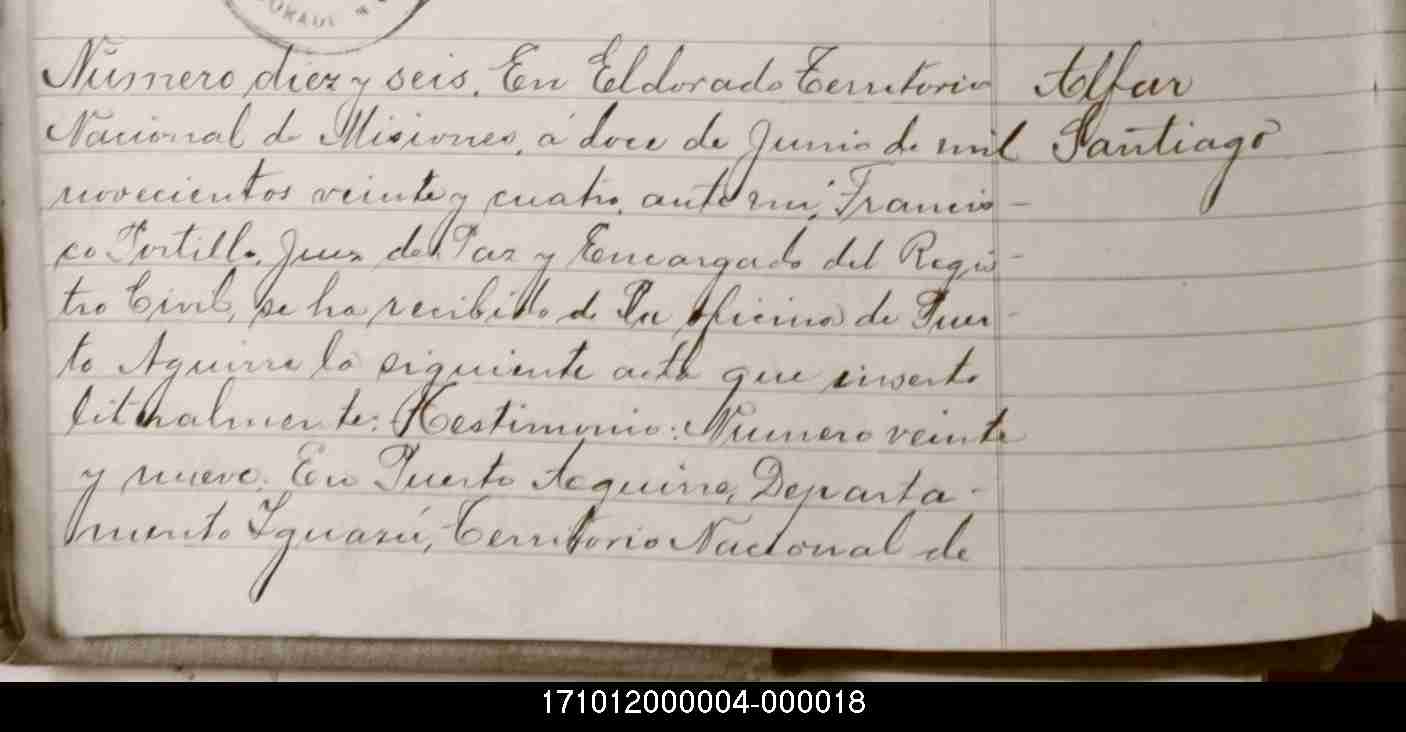 Número diez y seis. En Eldorado Territorio
Nacional de Misiones, á doce de Junio de mil
novecientos veinte y cuatro, ante mi, Francis-
co Portillo, Juez de Paz y Encargado del Regis-
tro Civil, se ha recibido de la oficina de Puer-
to Aguirre la siguiente acta que inserto
literalmente: Testimonio: Numero veinte
y nueve. En Puerto Aguirre, Departa-
mento Iguazú, Territorio Nacional de
Alfar
Santiago
171012000004-000018